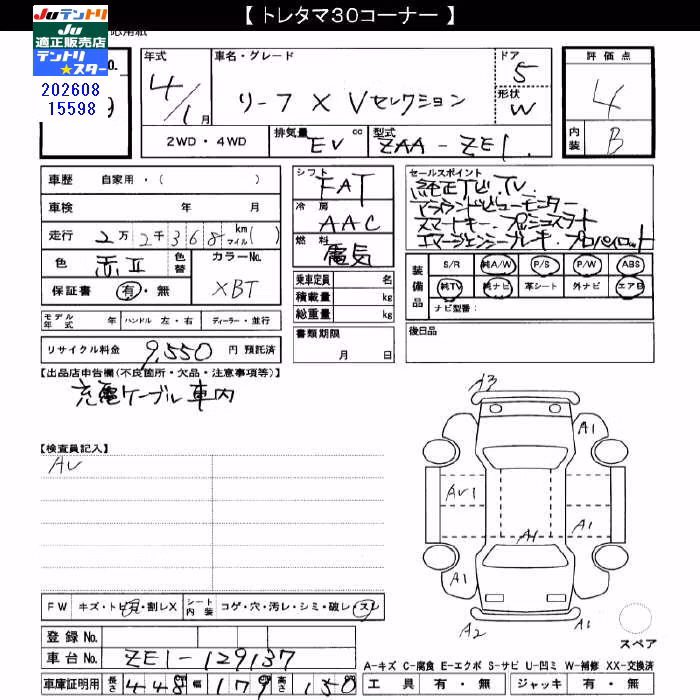 【 トレタマ30コーナー 】
Juテントリ
Ju
適正販売店
テントリ
★スター
202608
15598
年式
車名・グレード
ドア
5
評価点
4/1月
リーフ X Vセレクション
形状
W
4
2WD・4WD
排気量
EV
cc
型式
ZAA-ZE1
内装
B
車歴 自家用・( )
車検 年 月
走行 2万2千368 km マイル( )
色 赤II 色替 カラーNo.
XBT
保証書 有・無
モデル年式 年 ハンドル 左・右 ディーラー・並行
リサイクル料金 9,550 円 預託済
シフト
FAT
冷房
AAC
燃料
電気
乗車定員 名
積載量 kg
総重量 kg
書類期限
月 日
セールスポイント
純正ナビ.TV.
アラウンドビューモニター
スマートキー.プッシュスタート
エマージェンシーブレーキ.プロパイロット
装備品
S/R 純A/W P/S P/W ABS
純TV 純ナビ 革シート 外ナビ エアB
ナビ型番:
後日品
【出品店申告欄(不良箇所・欠品・注意事項等)】
充電ケーブル車内
【検査員記入】
AU
A3
A1
AU1
A1
A1
A1
A1
A2
スペア
FW キズ・トビ石・割レX シート内装 コゲ・穴・汚レ・シミ・破レ・スレ
登録 No.
車台 No. ZE1-129137
車庫証明用 長さ 448 幅 179 高さ 150
A-キズ C-腐食 E-エクボ S-サビ U-凹ミ W-補修 XX-交換済
工具 有・無 ジャッキ 有・無